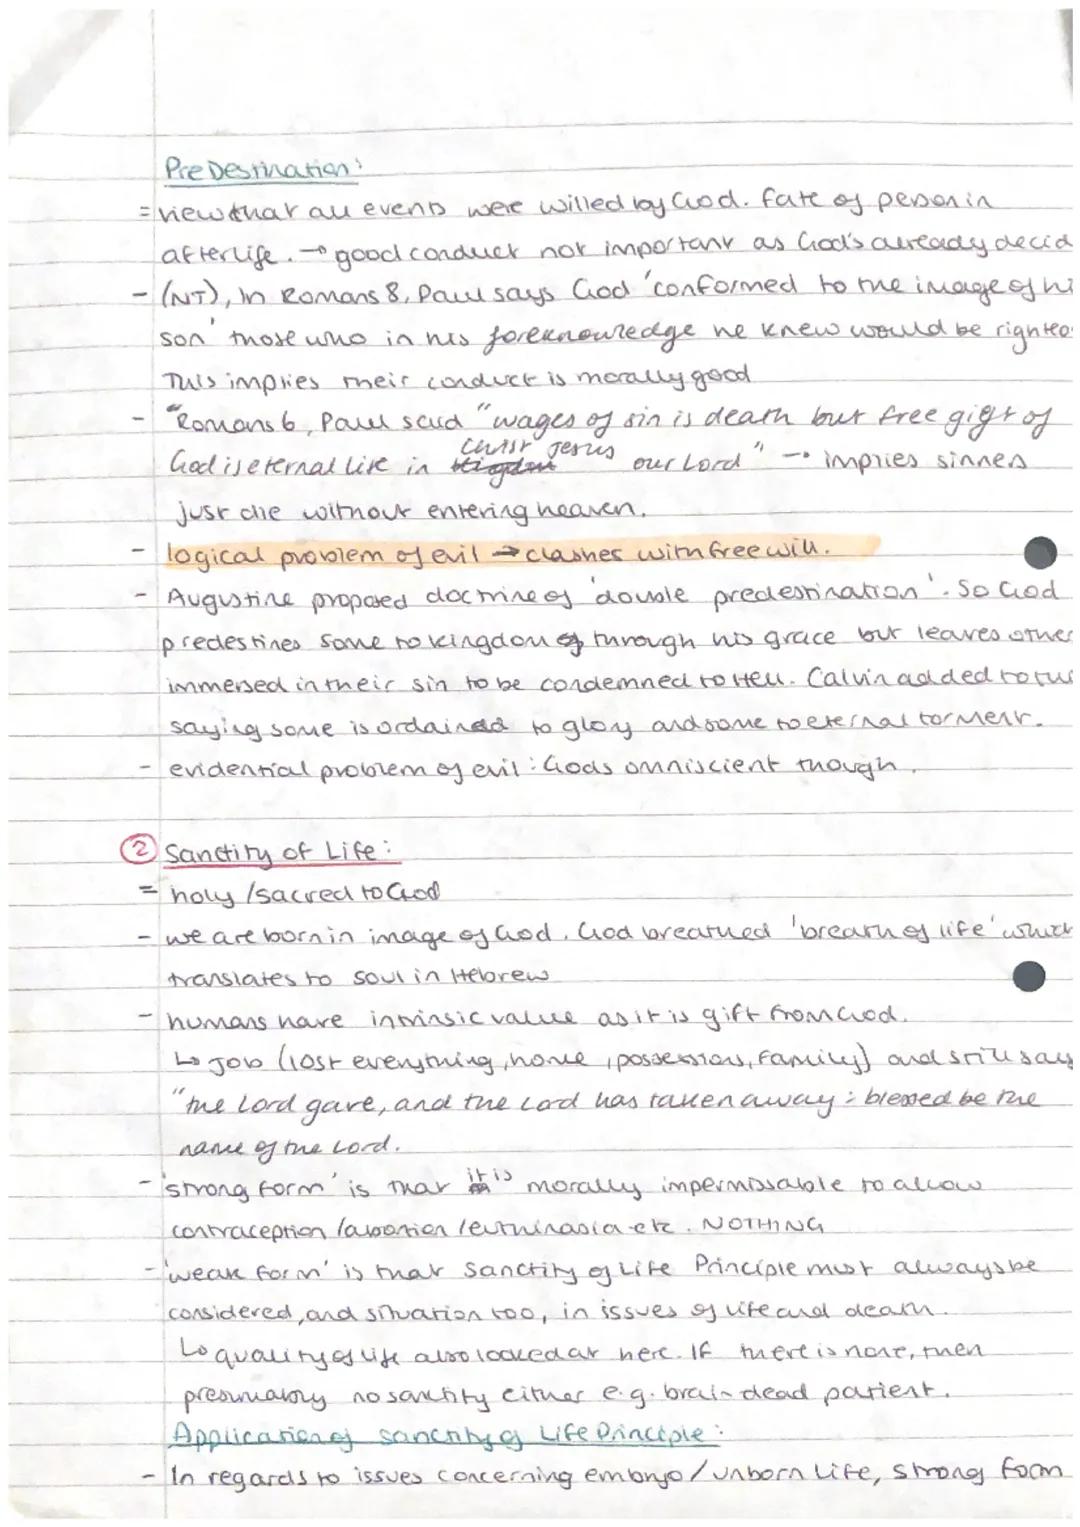 PreDestination:
= view that all events were willed by God. Fate of person in
afterlife. → good conduct not important as God's already decid
- (NT), In Romans 8, Paul says God 'conformed to the image of hi
son' those who in his foreknowledge he knew would be righteo
This implies their conduct is morally good
- "Romans 6, Paul said "wages of sin is death but free gift of
God is eternal life in Christ Jesus our Lord" → implies sinners
just die without entering heaven.
- logical problem of evil → clashes with free will.
- Augustine proposed doctrine of 'double predestination'. So God
predestines some to kingdom of through his grace but leaves other
immersed in their sin to be condemned to Hell. Calvin added to
saying some is ordained to glory and some to eternal torment.
- evidential problem of evil: Gods omniscient though.
② Sanctity of Life:
= holy /sacred to God
- we are born in image of God. God breathed 'breath of life' which
translates to soul in Hebrew
- humans have intrinsic value as it is gift from God.
↳ Job (lost everything, home, possessions, family) and still say
"the Lord gave, and the Lord has taken away: blessed be the
name of the Lord.
- 'strong form' is that it is morally impermissable to allow
contraception /abortion /euthinasia etc. NOTHING
- 'weak form' is that Sanctity of Life Principle must always be
considered, and situation too, in issues of life and death.
↳ quality of life also looked at here. If there is none, then
presumably no sanctity either e.g. brain-dead patient.
Application of sanctity of Life Principle:
- In regards to issues concerning embryo / unborn life, strong form